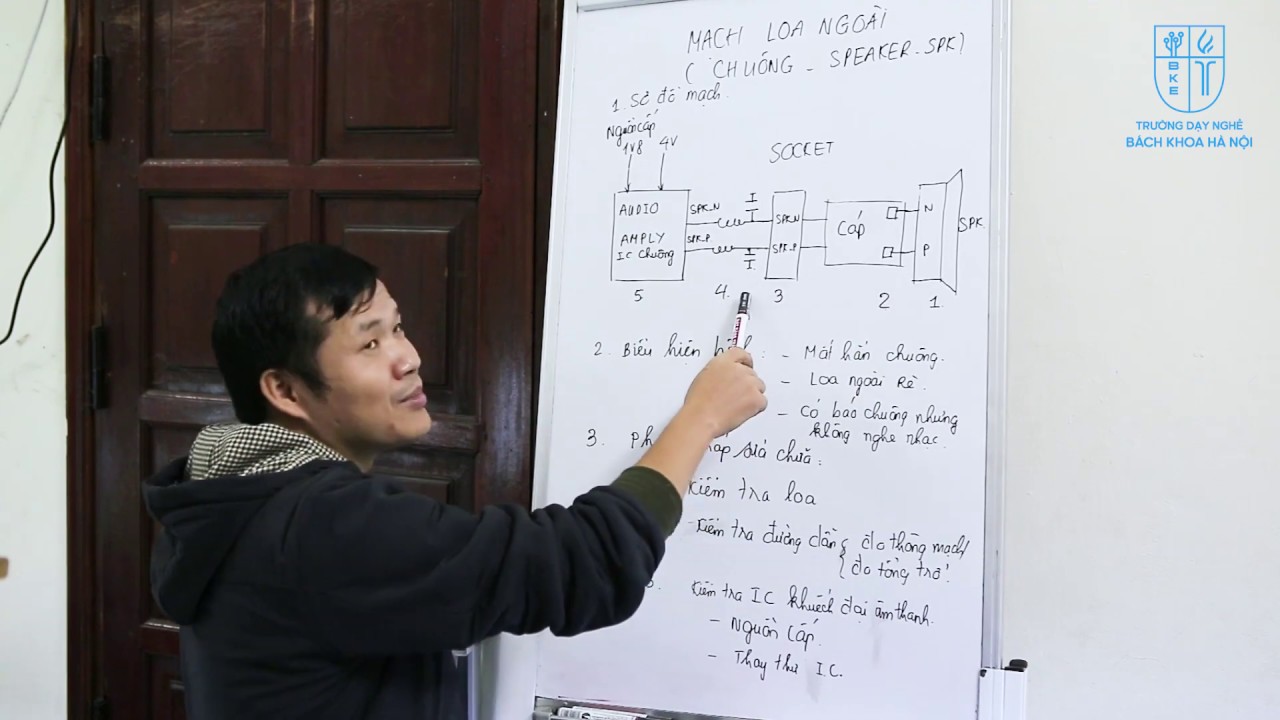 MẠCH LOA NGOÀI
(CHUÔNG - SPEAKER - SPK)
1. Sơ đồ mạch.
Nguồn cấp
1V8 4V
SOCKET
AUDIO
AMPLY
IC chuông
SPK_N
SPK_P
SPK_N
SPK_P
Cáp
N
P
SPK
5 4. 3 2 1.
2. Biểu hiện : - Mất hẳn chuông.
- Loa ngoài Rè.
- có báo chuông nhưng
không nghe nhạc.
3. sửa chữa:
Kiểm tra loa
- Kiểm tra đường dẫn { đo thông mạch
{ đo tổng trở.
Kiểm tra IC khuếch đại âm thanh.
- Nguồn cấp.
- Thay thử IC.
BKE
TRƯỜNG DẠY NGHỀ
BÁCH KHOA HÀ NỘI